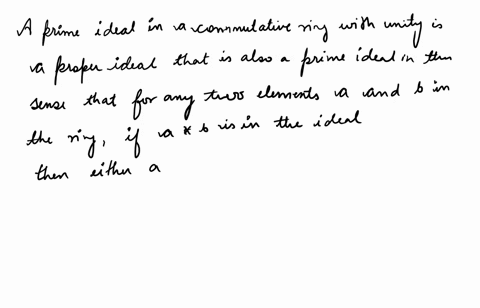 A prime ideal in a commutative ring with unity is
a proper ideal that is also a prime ideal in the
sense that for any two elements a and b in
the ring, if a * b is in the ideal
then either a